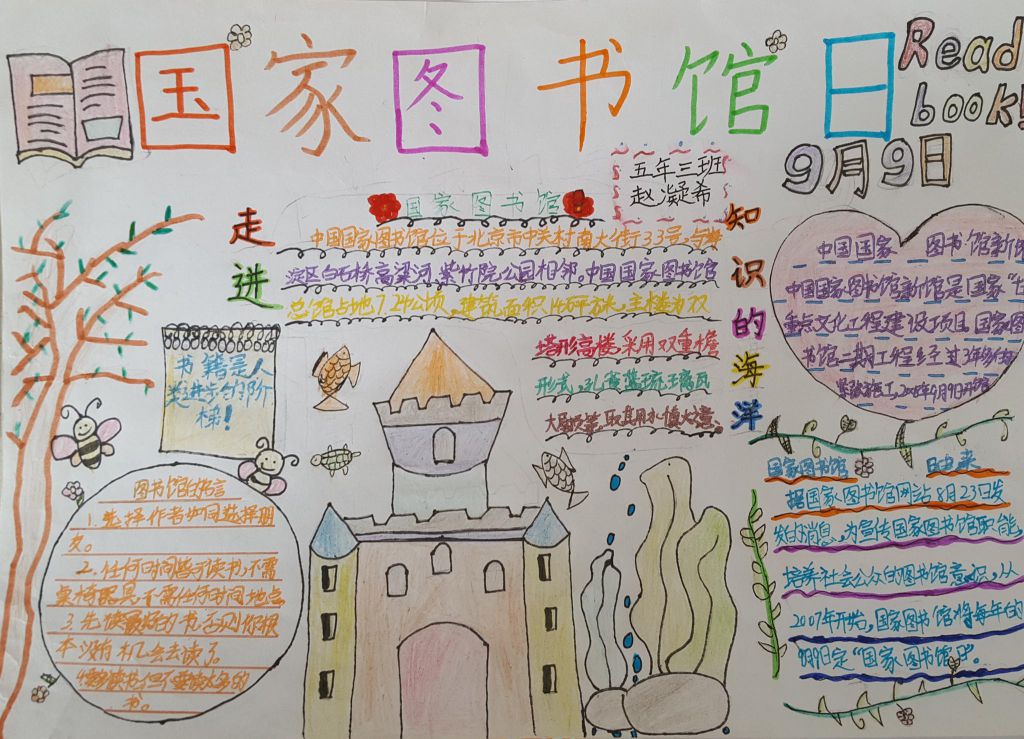 国家图书馆日
Read
book!
9月9日
五年三班
赵凝希
走进
知识的海洋
国家图书馆
中国国家图书馆位于北京市中关村南大街33号,与海
淀区白石桥高梁河、紫竹院公园相邻。中国国家图书馆
总馆占地7.24公顷,建筑面积14万平方米,主楼为双
塔形高楼,采用双重檐
形式,孔雀蓝琉璃瓦
大屋顶,取其用水慎火之意
书籍是人
类进步的阶
梯!
图书馆的名言
1.选择作者如同选择朋
友。
2.任何时间皆可读书,不需
桌椅器具,不需任何时间地点
3.先读最好的书,否则你根
本没有机会去读了。
要读书但不要读太多的
书。
中国国家 图书馆新馆
中国国家图书馆新馆是国家"十
重点文化工程建设项目 国家图
书馆二期工程经过3年多的
2008年9月9日开馆
国家图书馆 日由来
据国家图书馆网站8月23日发
发的消息,为宣传国家图书馆职能,
培养社会公众的图书馆意识,从
2007年开始,国家图书馆将每年的
9月9日定"国家图书馆日"。